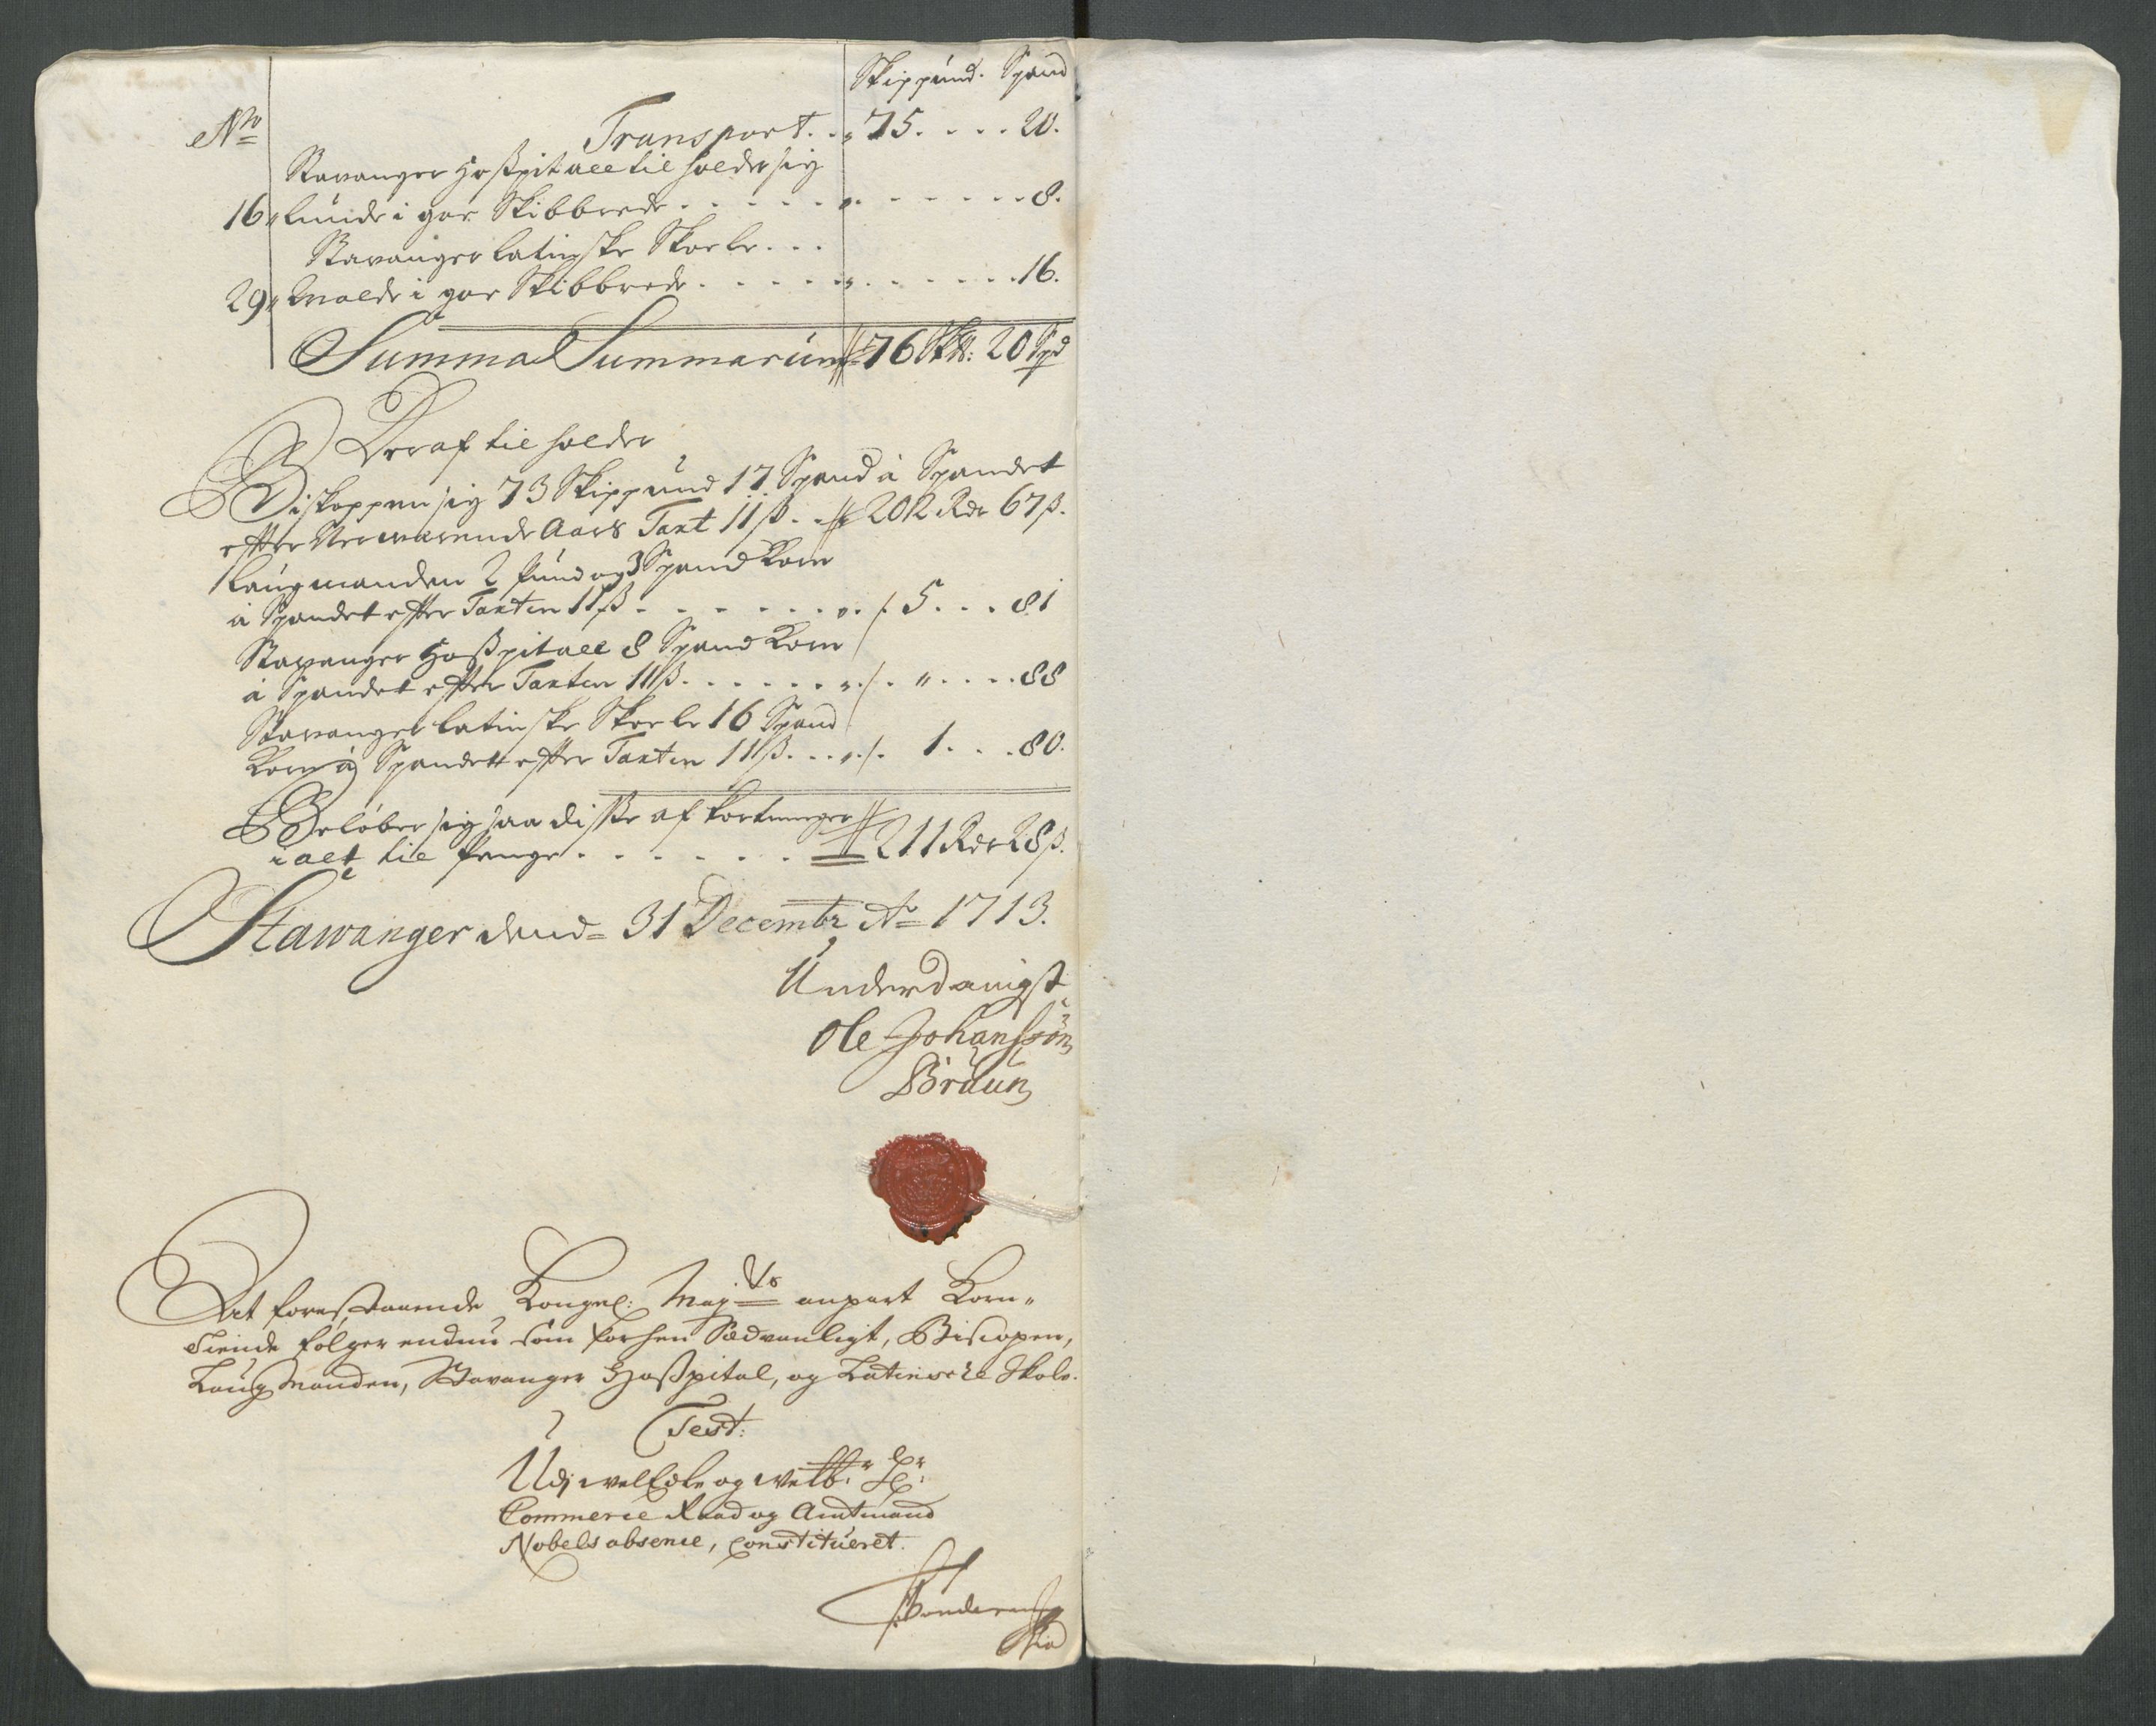 Skippund. Spand
No Transport. . „ 75. . . . 20.
Stavanger Hoßpitall til holder sig
16 „ Lunde i gar Skibbrede . . . . . „ . . . . . . . 8.
Stavanger Latinske Skoele . . .
29 „ Malde i gar Skibbrede . . . . . „ . . . . . . 16.
Summa Summarum 76 Sk℔: 20 Spd
Deraf til holder
Biskoppen sig 73 Skippund 17 Spand à Spandet
efter Nerwærende Aars Taxt 11 ß. . 202 Rdr 67 ß.
Laugmanden 2 Pund og 3 Spand Korn
à Spandet efter Taxten 11 ß . . . . . . „ . / . 5 . . . 81
Stavanger Hoßpitall 8 Spand Korn
à Spandet efter Taxten 11 ß. . . . . . „ . / . „ . . . . 88
Stavanger Latinske Skoele 16 Spand
Korn à Spandett efter Taxten 11 ß. . . „ . / . 1 . . . 80.
Beløber sig saa diße af kortninger
i alt til Penge . . . . . . 211 Rdr 28 ß.
Stawanger dend 31 Decembr Ao 1713.
Underdanigst
Ole Johanssøn
Bruun
At forestaaende Kongel: Mayts anpart Korn-
Tiende følger endnu som forhen Sædvanligt, Biscopen,
Laugmanden, Stavanger Hoßpital, og Latinsche Skole.
Test:
Udj welEdle og welb:r Hr:
Commerce Raad og Amtmand
Nobels absence, constitueret.